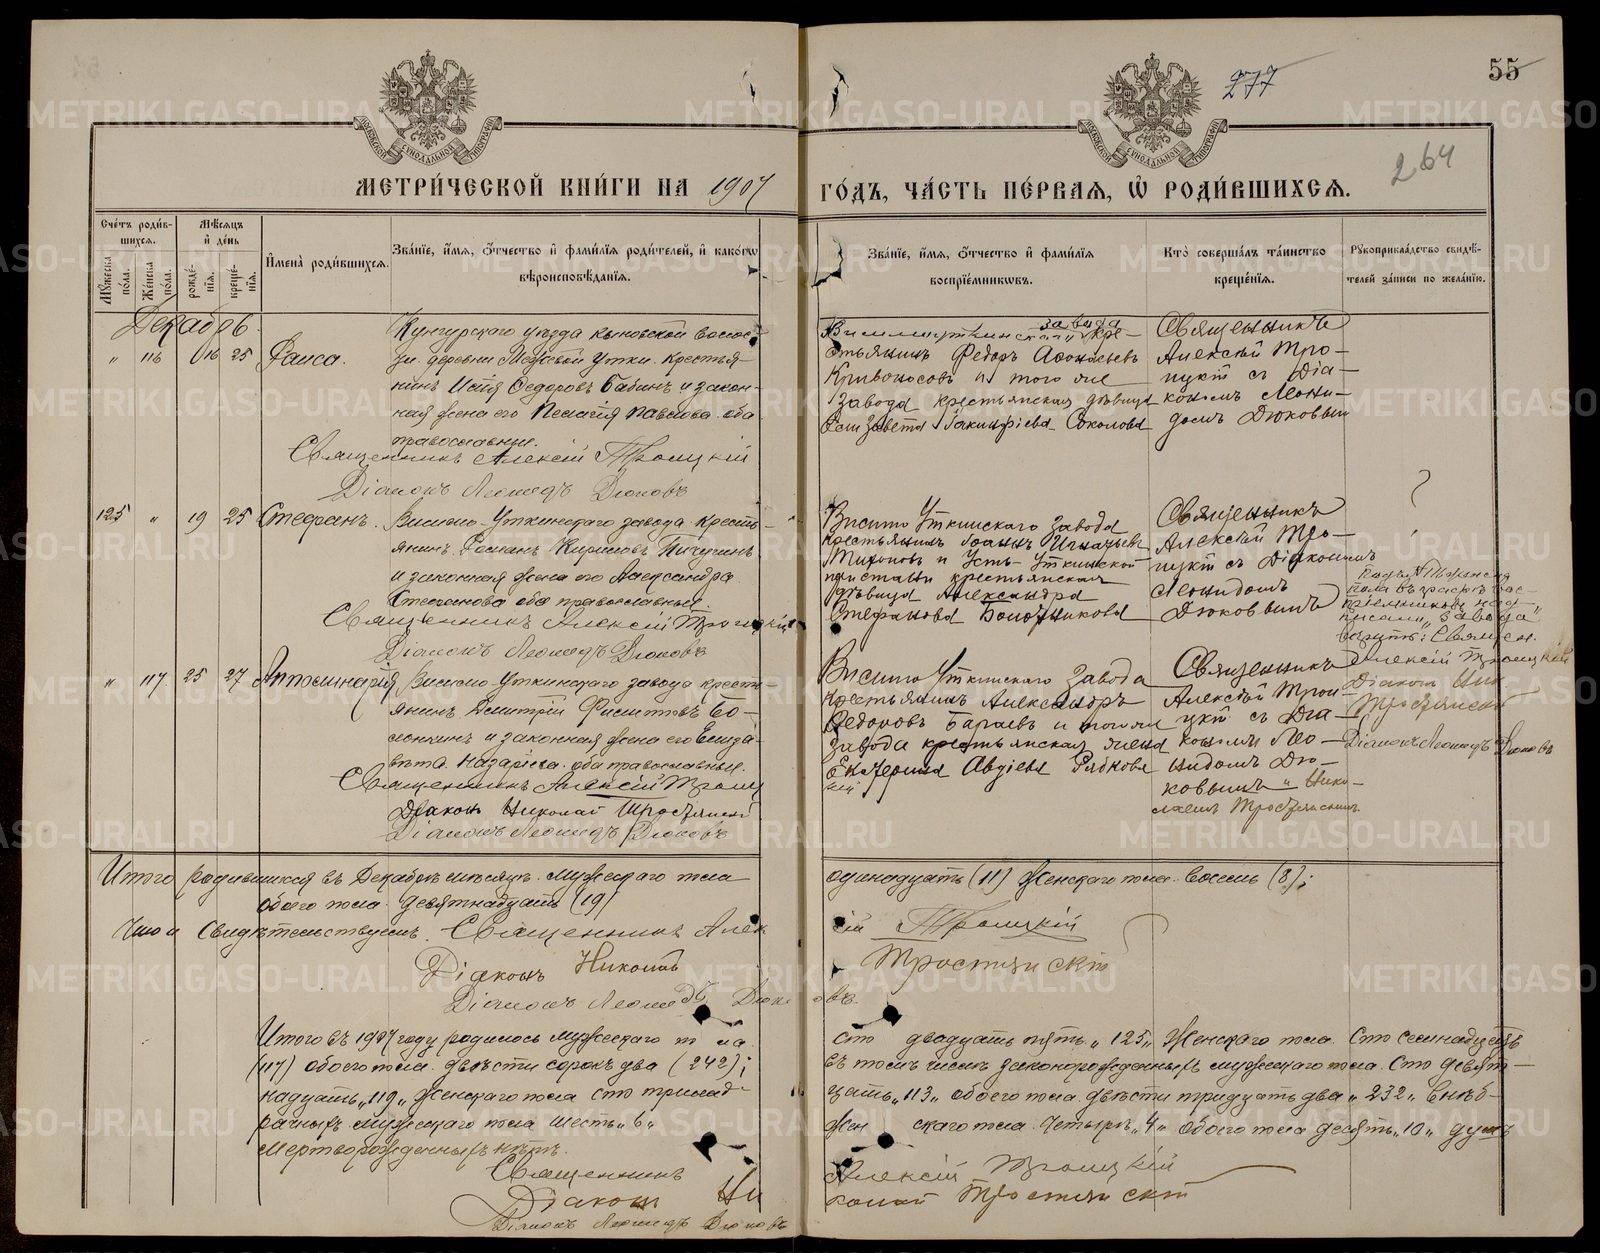 277
55
264
МЕТРИ́ЧЕСКОЙ КНИ́ГИ НА 1907 ГО́ДЪ, ЧА́СТЬ ПЕ́РВАЯ, Ѡ҆ РОДИ́ВШИХСЯ.
Сче́тъ роди́вшихся.
Мꙋ́жеска по́ла.
Же́нска по́ла.
Мѣ́сяцъ и҆ де́нь
рожде́нїя.
креще́нїя.
И҆мена̀ роди́вшихся.
Зва́нїе, и҆́мя, ѻ҆́тчество и҆ фами́лїя роди́телей, и҆ како́гѡ
вѣроисповѣ́данїя.
Зва́нїе, и҆́мя, ѻ҆́тчество и҆ фами́лїя
воспрїе́мниковъ.
Кто̀ соверша́лъ та́инство
креще́нїя.
Рꙋкоприкла́дство свидѣ́-
телей за́писи по жела́нїю.
Декабрь.
" 116 16 25 Раиса.
Кунгурскаго уѣзда Кыновской волос-
ти деревни Межевой Утки крестья-
нинъ Исаія Ѳедоровъ Бабинъ и закон-
ная жена его Пелагія Павлова оба
православные.
Священникъ Алексій Троицкій
Діаконъ Леонидъ Дюковъ
завода кре-
стьянинъ Федоръ Афонасьевъ
Кривоносовъ и того же
завода крестьянская дѣвица
Елизавета Іакинфіева Соколова
Священникъ
Алексій Тро-
ицкій съ Діа-
кономъ Леони-
домъ Дюковымъ
125 " 19 25 Стефанъ.
Висимо-Уткинскаго завода кресть-
янинъ Романъ Кириловъ Пичугинъ
и законная жена его Александра
Степанова оба православные
Священникъ Алексій Троицкій
Діаконъ Леонидъ Дюковъ
Висимо Уткинскаго завода
крестьянинъ Іоаннъ Игнатьевъ
Тихоновъ и Усть-Уткинской
пристани крестьянская
дѣвица Александра
Стефанова Болотникова
Священникъ
Алексій Тро-
ицкій съ Діакономъ
Леонидомъ
Дюковымъ
вос-
пріемниковъ над-
писано „завода
вѣрить: Священ.
Алексій Троицкій
Діаконъ Ник.
Тростянскій
Діаконъ Леонидъ Дюковъ
" 117 25 27 Апполинарія
Висимо-Уткинскаго завода кресть-
янинъ Дмитрій Филиповъ Бо-
и законная жена его Елиза-
вета Назарьева оба православные.
Священникъ Алексій Троиц
Діаконъ Николай Тростянскій
Діаконъ Леонидъ Дюковъ
Висимо Уткинскаго завода
крестьянинъ Александръ
Ѳедоровъ Бараевъ и того же
завода крестьянская жена
Екатерина Авдіева Рябкова
кій
Священникъ
Алексій Трои-
цкій съ Діа-
кономъ Лео-
нидомъ Дю-
ковымъ и Нико-
лаемъ Тростянскимъ
Итого родившихся въ Декабрѣ мѣсяцѣ мужескаго пола одинадцать (11) Женскаго пола восемь (8);
обоего пола девятнадцать (19)
Что и свидѣтельствуемъ. Священникъ Алексій Троицкій
Діаконъ Николай Тростянскій
Діаконъ Леонидъ Дюковъ.
Итого въ 1907 году родилось мужескаго пола сто двадцать пять „125„ Женскаго пола сто семнадцать
(117) обоего пола двѣсти сорокъ два (242); въ томъ числѣ законорожденныхъ мужескаго пола сто девят-
надцать „119„ женскаго пола сто тринад-цать „113„ обоего пола двѣсти тридцать два „232„ внѣб-
рачныхъ мужескаго пола шесть „6„ женскаго пола четыре „4„ обоего пола десять „10„ душъ
Мертворожденныхъ нѣтъ.
Священникъ Алексій Троицкій
Діаконъ Николай Тростянскій
Діаконъ Леонидъ Дюковъ
METRIKI.GASO-URAL.RU